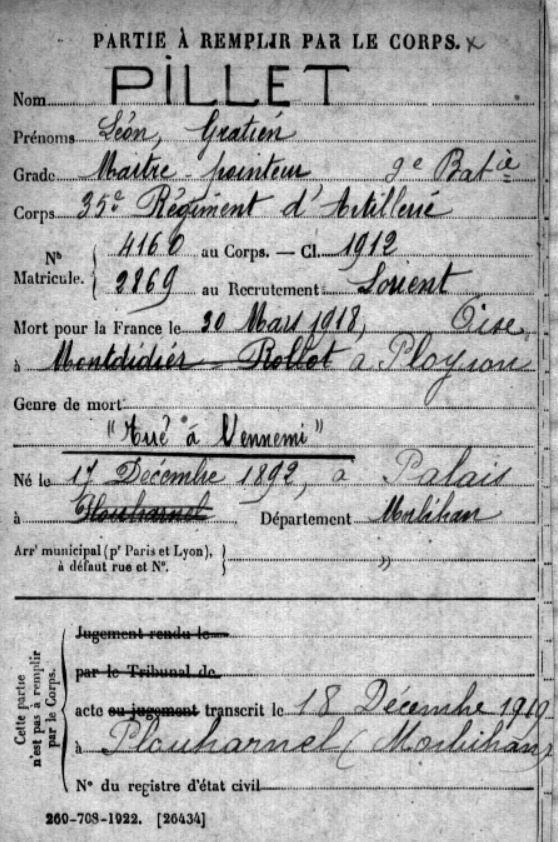 PARTIE À REMPLIR PAR LE CORPS. x
Nom PILLET
Prénoms Léon, Gratien
Grade Maitre-pointeur 9e Batie
Corps 35e Régiment d'Artillerie
Nº Matricule. { 4160 au Corps. — Cl. 1912
2869 au Recrutement Lorient
Mort pour la France le 30 Mars 1918, Oise
à Montdidier - Rollot à Ployron
Genre de mort
"Tué à l'ennemi"
Né le 17 Décembre 1892, à Palais
à Plouharnel Département Morbihan
Arrt municipal (pr Paris et Lyon), à défaut rue et Nº. } »
Cette partie n'est pas à remplir par le Corps.
Jugement rendu le
par le Tribunal de
acte ou jugement transcrit le 18 Décembre 1919
à Plouharnel (Morbihan)
Nº du registre d'état civil
260-708-1922. [26434]